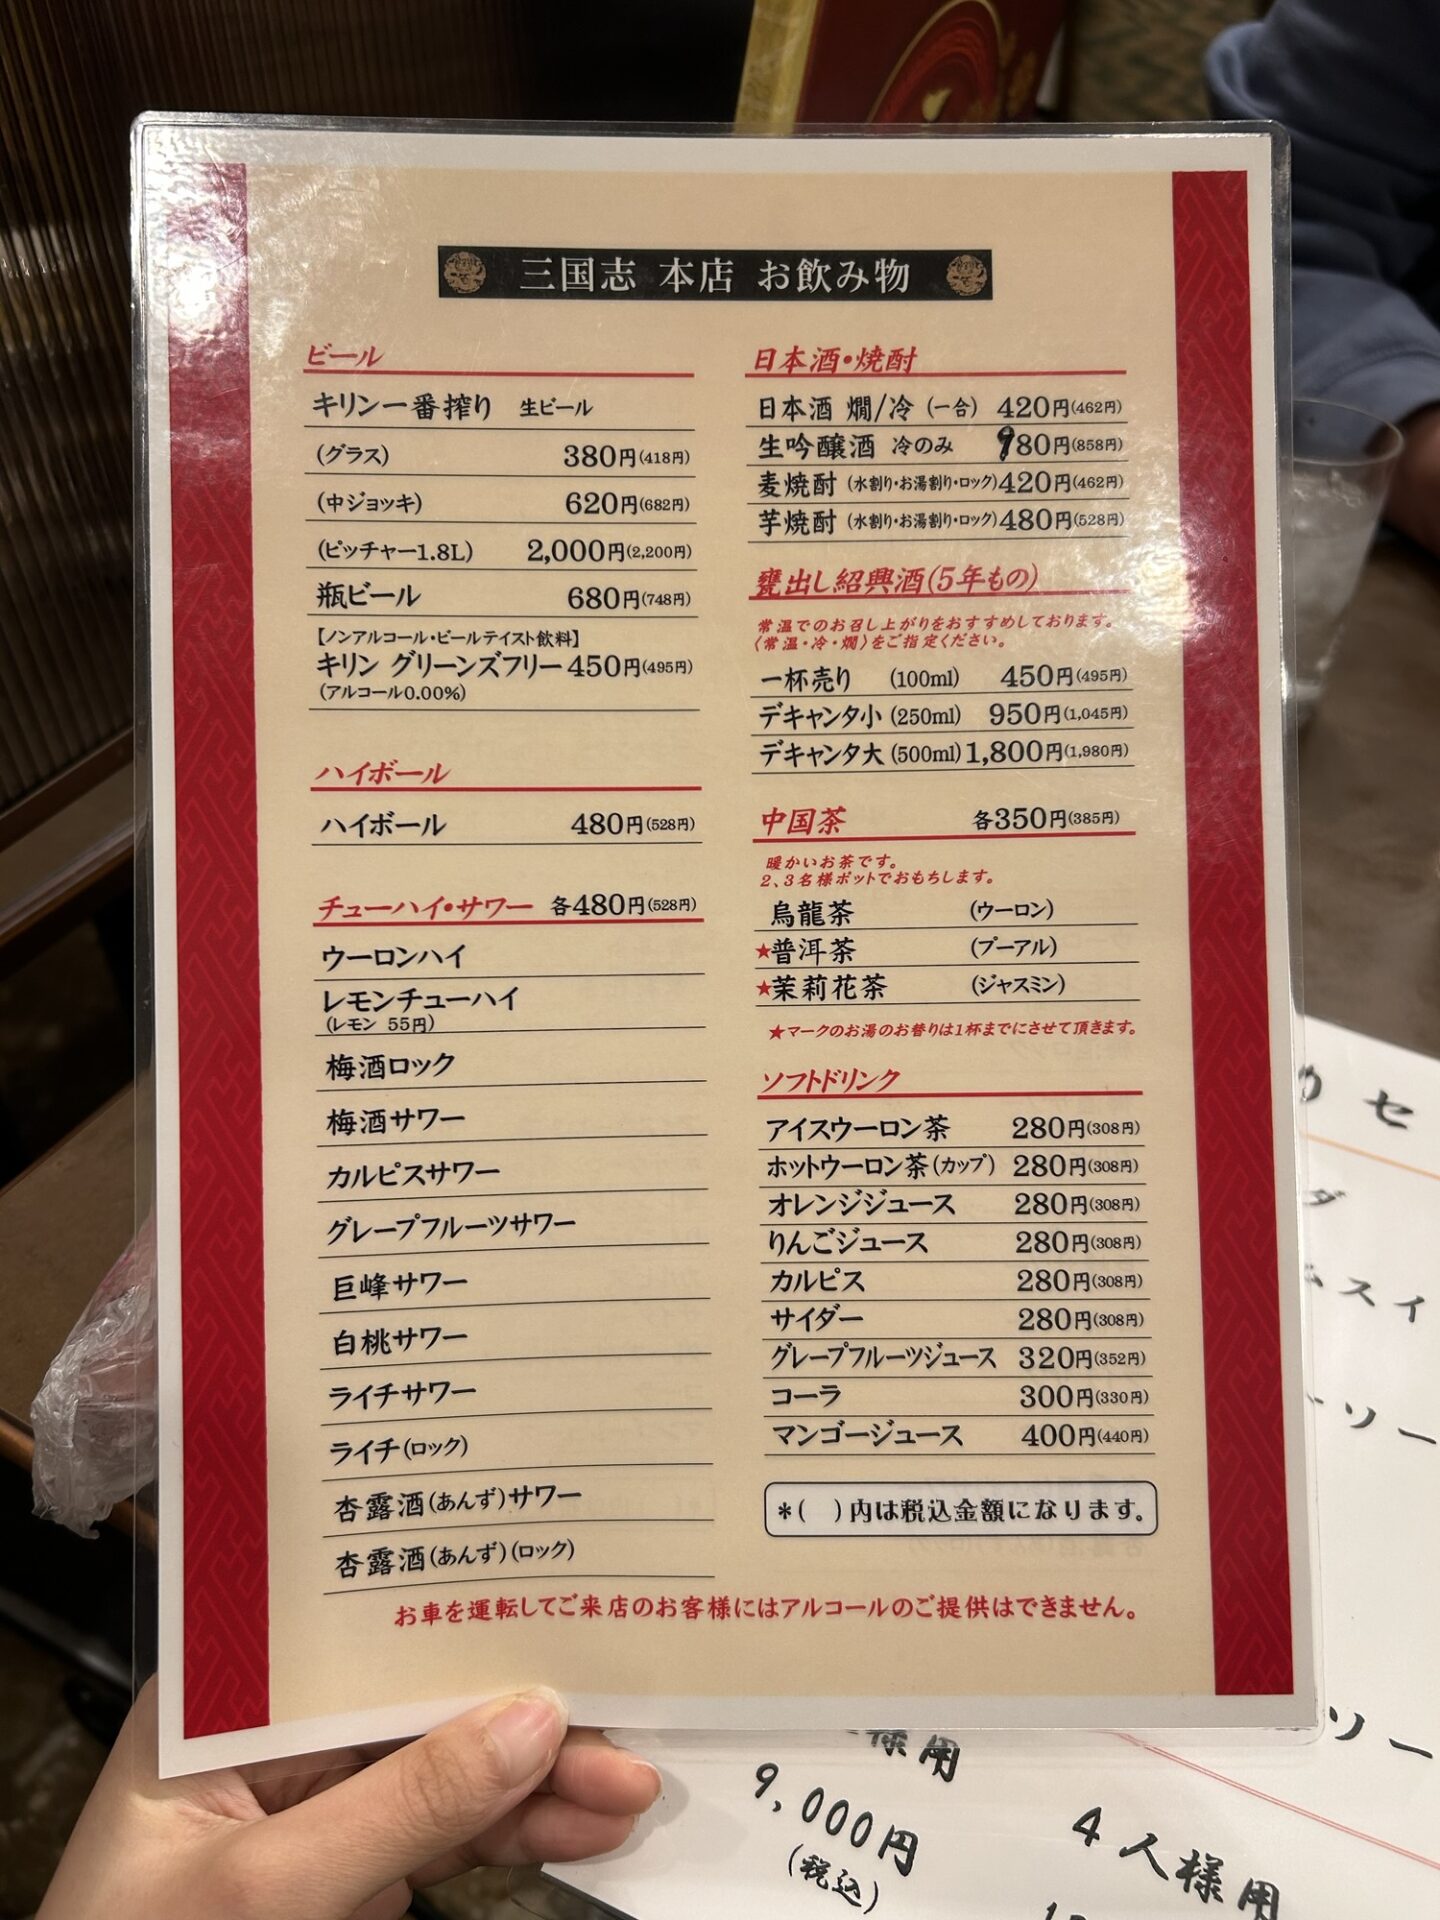 三国志 本店 お飲み物
ビール
キリン一番搾り 生ビール
(グラス) 380円(418円)
(中ジョッキ) 620円(682円)
(ピッチャー1.8L) 2,000円(2,200円)
瓶ビール 680円(748円)
【ノンアルコール・ビールテイスト飲料】
キリン グリーンズフリー 450円(495円)
(アルコール0.00%)
ハイボール
ハイボール 480円(528円)
チューハイ・サワー 各480円(528円)
ウーロンハイ
レモンチューハイ
(レモン 55円)
梅酒ロック
梅酒サワー
カルピスサワー
グレープフルーツサワー
巨峰サワー
白桃サワー
ライチサワー
ライチ(ロック)
杏露酒(あんず)サワー
杏露酒(あんず)(ロック)
日本酒・焼酎
日本酒 燗/冷 (一合) 420円(462円)
生吟醸酒 冷のみ 980円(858円)
麦焼酎 (水割り・お湯割り・ロック) 420円(462円)
芋焼酎 (水割り・お湯割り・ロック) 480円(528円)
甕出し紹興酒(5年もの)
常温でのお召し上がりをおすすめしております。
〈常温・冷・燗〉をご指定ください。
一杯売り (100ml) 450円(495円)
デキャンタ小 (250ml) 950円(1,045円)
デキャンタ大 (500ml) 1,800円(1,980円)
中国茶 各350円(385円)
暖かいお茶です。
2、3名様ポットでおもちします。
烏龍茶 (ウーロン)
★普洱茶 (プーアル)
★茉莉花茶 (ジャスミン)
★マークのお湯のお替りは1杯までにさせて頂きます。
ソフトドリンク
アイスウーロン茶 280円(308円)
ホットウーロン茶(カップ) 280円(308円)
オレンジジュース 280円(308円)
りんごジュース 280円(308円)
カルピス 280円(308円)
サイダー 280円(308円)
グレープフルーツジュース 320円(352円)
コーラ 300円(330円)
マンゴージュース 400円(440円)
*( )内は税込金額になります。
お車を運転してご来店のお客様にはアルコールのご提供はできません。
セ
ダ
ムスイ
ーソー
ソー
様用
9,000円
(税込)
4人様用